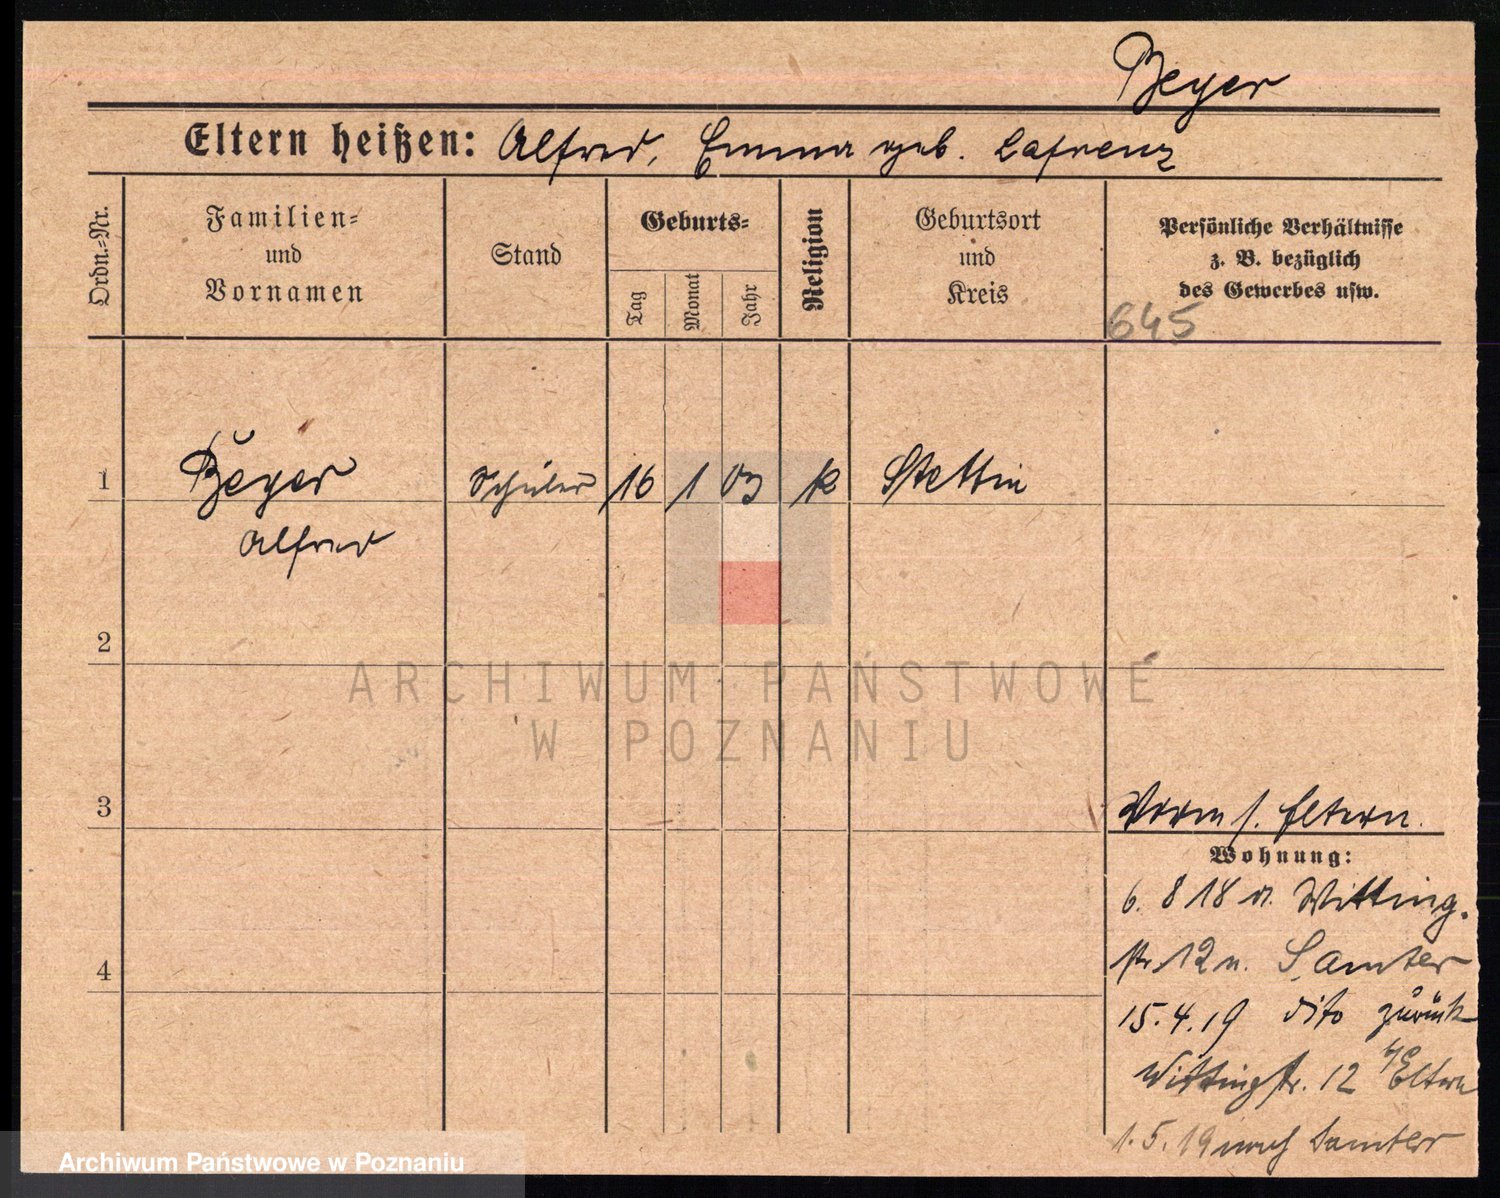 Beyer
Eltern heißen: Alfred, Emma geb. Lafrenz
Ordn.=Nr.
Familien=
und
Vornamen
Stand
Geburts=
Tag
Monat
Jahr
Religion
Geburtsort
und
Kreis
Persönliche Verhältnisse
z. B. bezüglich
des Gewerbes usw.
645
1
Beyer Schüler 16 1 03 k Stettin
Alfred
2
ARCHIWUM PAŃSTWOWE
W POZNANIU
3
Vorm s. Eltern.
Wohnung:
6. 8 18 v. Witting.
str. 12 n. Samter
15.4.19 dito zurück
Wittingstr. 12 Eltern
4
1. 5. 19 nach Samter
Archiwum Państwowe w Poznaniu